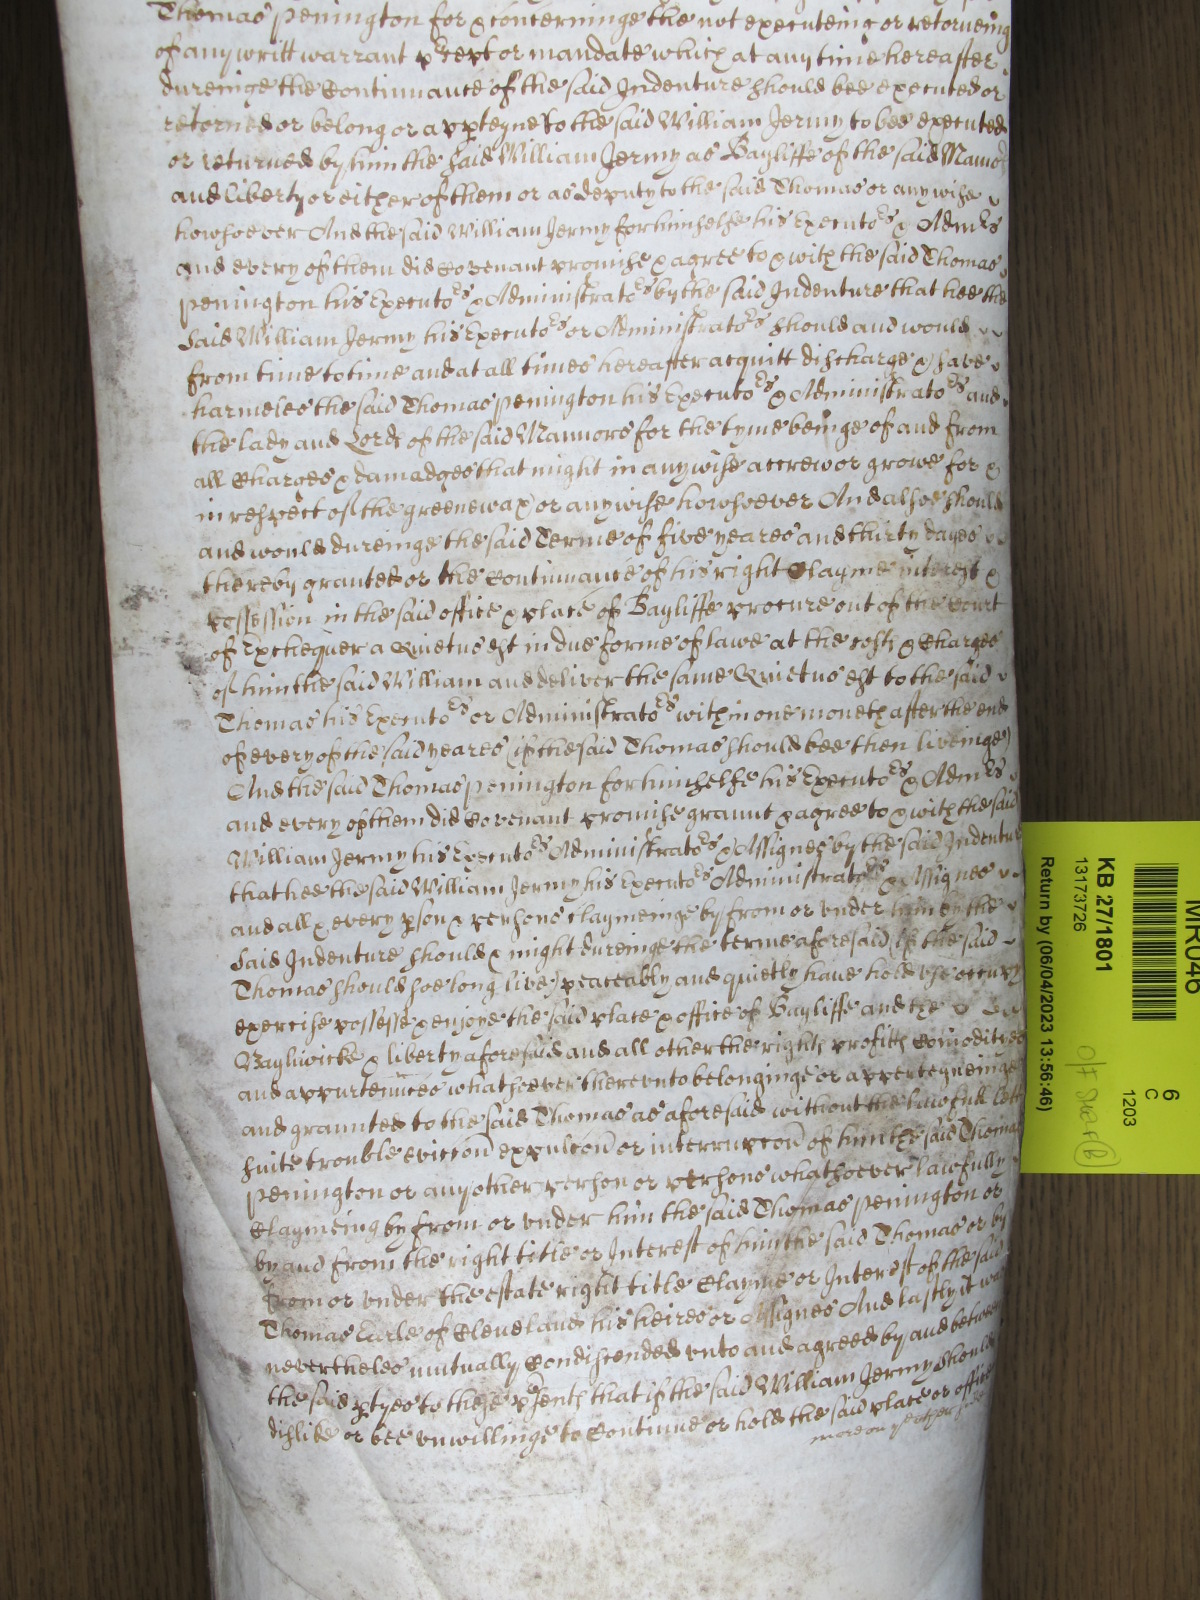 Thomas Penington for & concerninge the not executeing or retorneing
of any writt warrant pcept or mandate which at any time hereafter
dureinge the Continuance of the said Indenture should bee executed or
retorned or belong or appteyne to the said William Jermy to bee executed
or returned by him the said William Jermy as Bayliffe of the said Mannor
and liberty or either of them or as deputy to the said Thomas or any wise
howsoever And the said William Jermy for himselfe his Executors & Admrs
and every of them did Covenant promise & agree to & with the said Thomas
Penington his Executors & Administrators by the said Indenture that hee the
said William Jermy his Executors or Administrators should and would
from time to time and at all times hereafter acquitt discharge & save
harmeles the said Thomas Penington his Executors & Administrators and
the lady and Lords of the said Mannors for the tyme beinge of and from
all Charges & damadges that might in any wise accrew or growe for &
in respect of the greenewax or any wise howsoever And alsoe should
and would dureinge the said Terme of five yeares and thirty dayes
thereby granted or the Continuance of his right Clayme interest &
possession in the said office & place of Bayliffe procure out of the Court
of Exchequer a Quietus est in due forme of lawe at the costs & Charges
of him the said William and deliver the same Quietus est to the said
Thomas his Executors or Administrators within one moneth after the end
of every of the said yeares (if the said Thomas should bee then liveinge)
And the said Thomas Penington for himselfe his Executors & Admrs
and every of them did Covenant promise graunt & agree to & with the said
William Jermy his Executors Administrators & Assignes by the said Indenture
that hee the said William Jermy his Executors Administrators & Assignes
and all & every pson & persons claymeinge by from or under him by the
said Indenture should & might dureinge the terme aforesaid (if the said
Thomas should soe long live) peaceably and quietly have hold use occupy
exercise possesse & enjoye the said place & office of Bayliffe and the
Bayliwicke & liberty aforesaid and all other the rights profitts Comodityes
and appurtennces whatsoever thereunto belonginge or apperteyneinge
and graunted to the said Thomas as aforesaid without the lawfull lett
suite trouble eviccon expulcon or interrupcon of him the said Thomas
Penington or any other person or persons whatsoever lawfully
Claymeing by from or under him the said Thomas Penington or
by and from the right title or Interest of him the said Thomas or by
from or under the estate right title Clayme or Interest of the said
Thomas Earle of Cleveland his heires or Assignes And lastly it was
neverthelesse mutually Condiscended unto and agreed by and betweene
the said ptyes to these psents that if the said William Jermy should
dislike or bee unwillinge to Continue or hold the said place or office
more on other side
MR046
KB 27/1801
13173726
Return by (06/04/2023 13:56:46)
6
C
1203